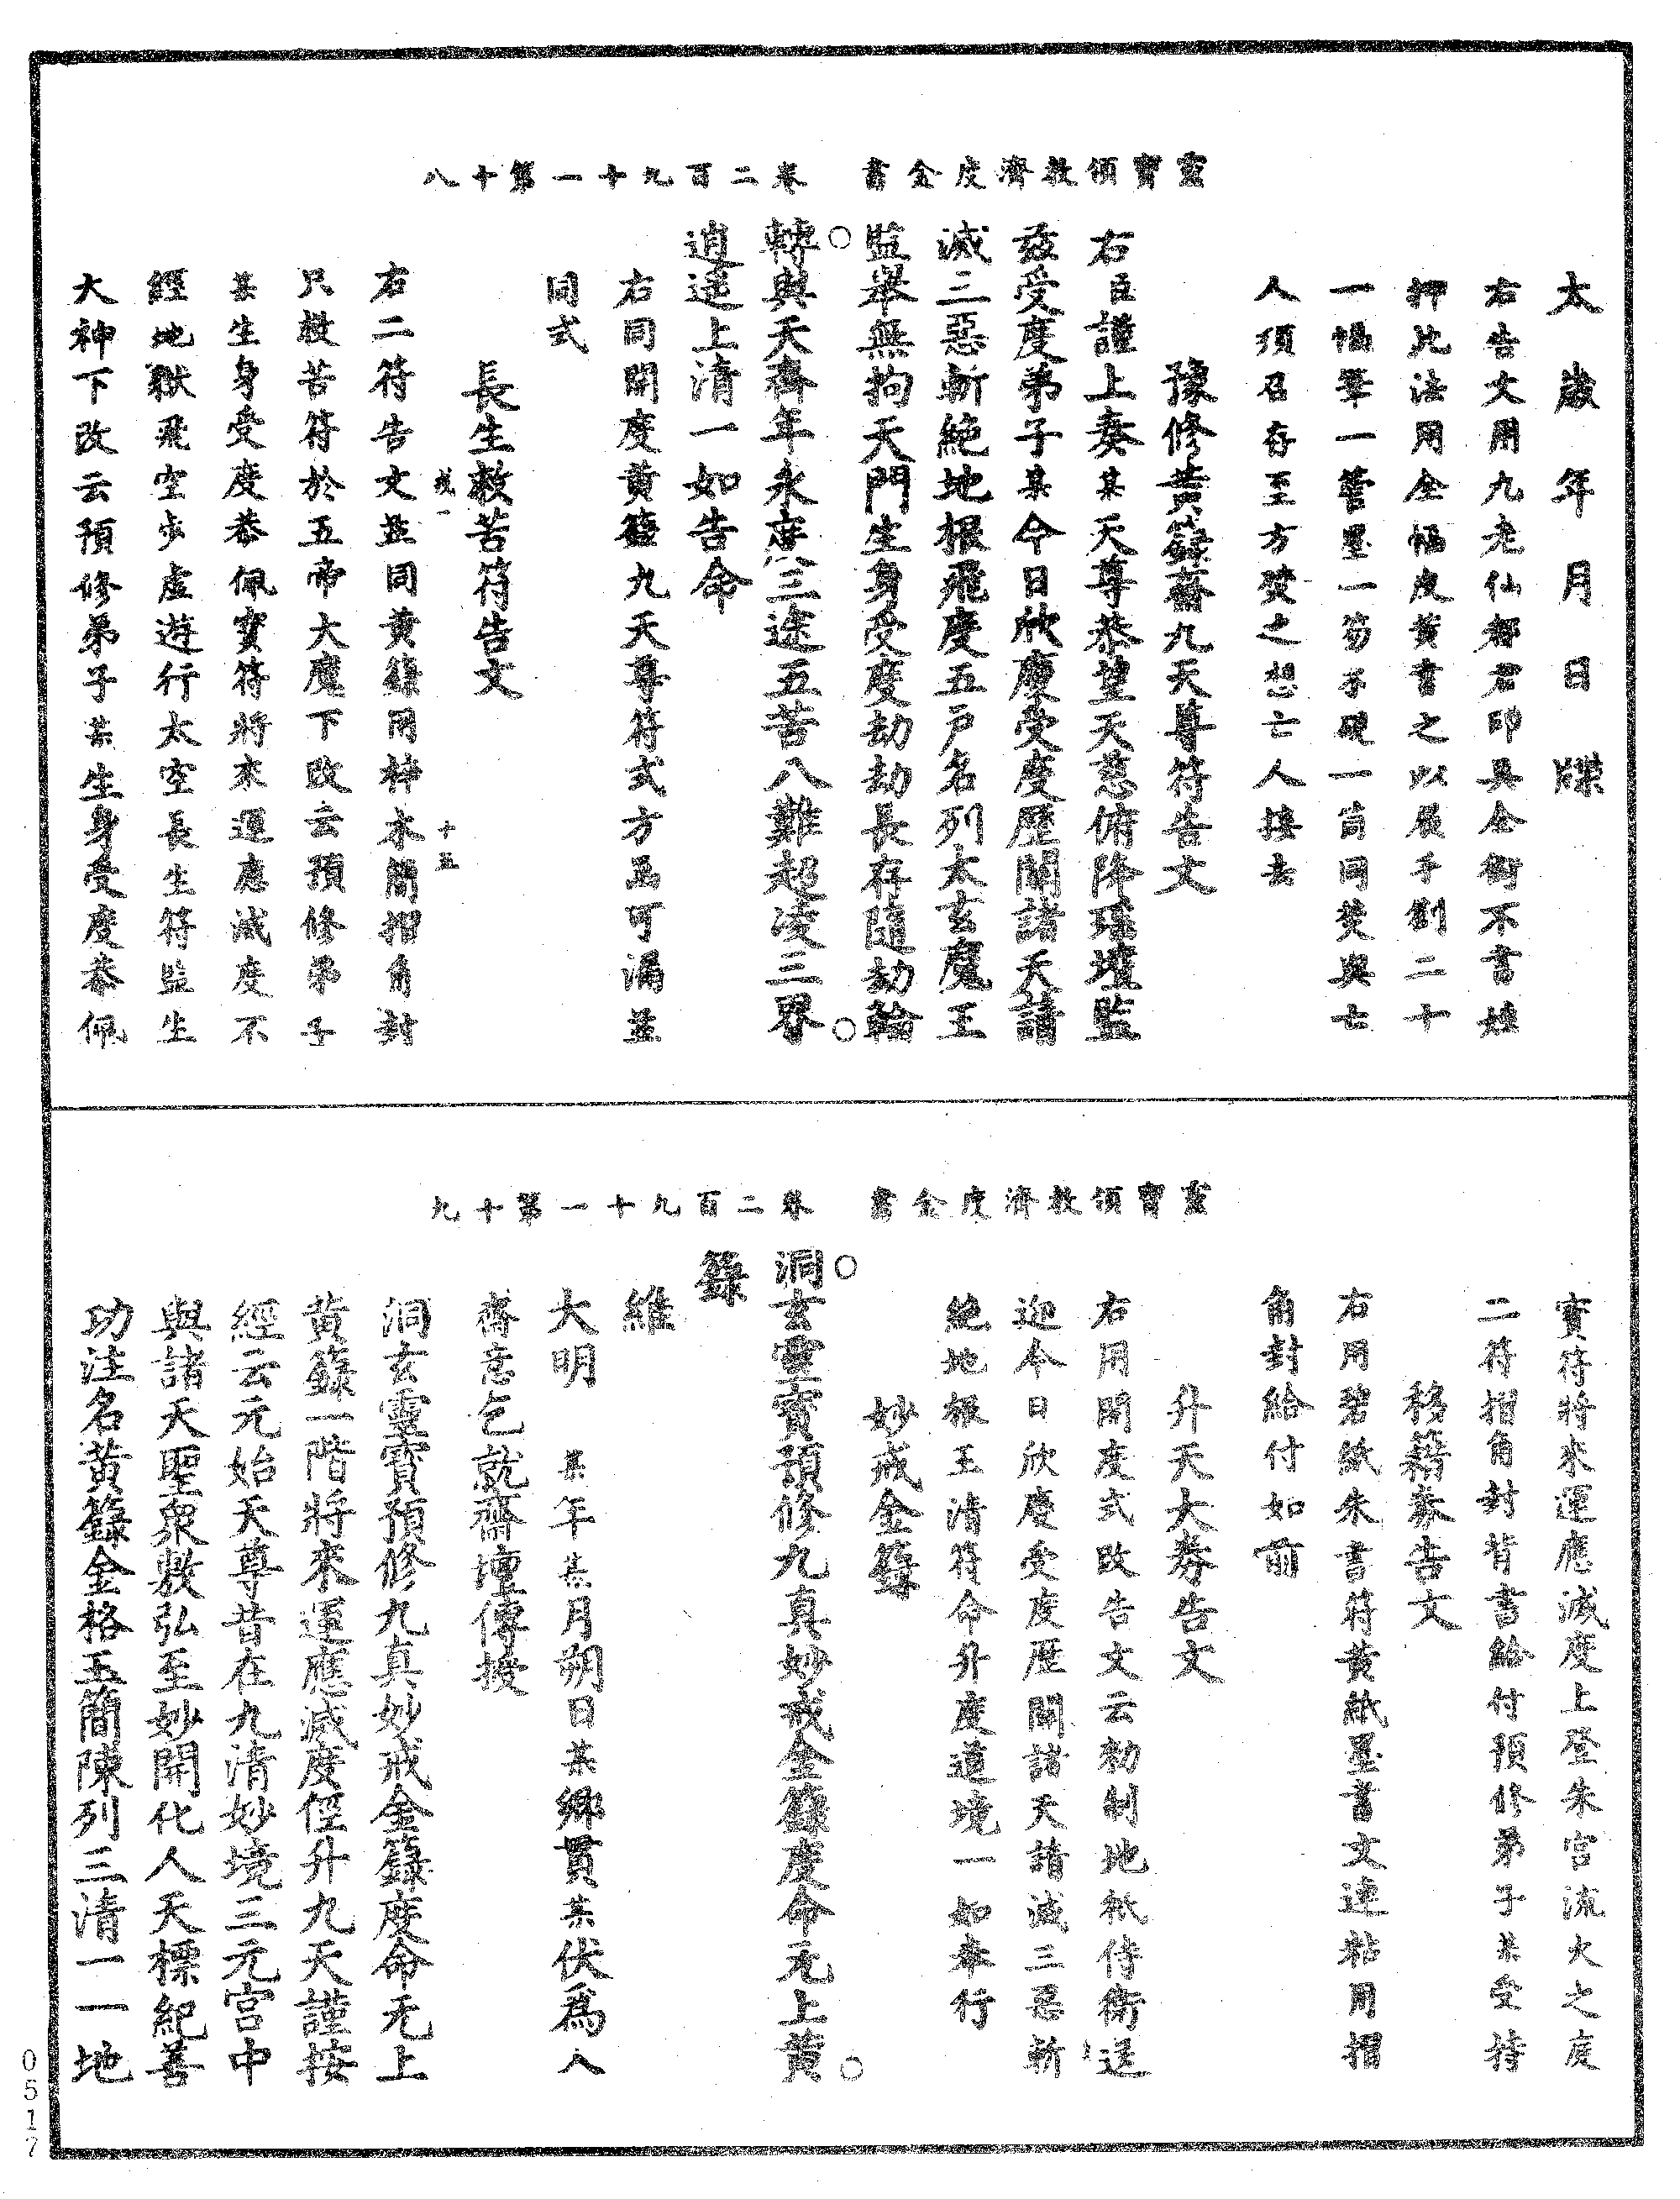 靈寶領教濟度金書　卷二百九十一第十八
太歲年月日牒
右告文用九老仙都君印具全銜不書姓
押此法用全幅皮黃書之以展手劄二十
一幅筆一管墨一笏水硯一简同焚與亡
人須召存至方焚之想亡人接去
豫修黃籙齋九天尊符告文
右臣謹上奏某天天尊恭望天慈俯降瑤壇監
茲受度弟子某今日欣慶受度歷關諸天請
滅三惡斬絕地根飛度五戶名列太玄魔王
監舉無拘天門生身受度劫劫長存隨劫輪
轉與天齊年永度三途五苦八難超凌三界
逍遥上清一如告命
右同開度黃籙九天尊符式方函可漏並
同式
長生救苦符告文
戎一　十五
右二符告文並同黃籙用梓木簡摺角封
只救苦符於五帝大魔下改云預修弟子
某生身受度恭佩寶符將來運應滅度不
經地獄飛空步虛遊行太空長生符監生
大神下改云預修弟子某生生身受度恭佩
靈寶領教濟度金書　卷二百九十一第十九
寶符將來運應滅度上登朱宮流火之庭
二符摺角封背書給付預修弟子某受持
移籍券告文
右用碧紙朱書符黃紙墨書文連粘用摺
角封給付如前
升天大券告文
右用開度式改告文云勑制地祇侍衛送
迎今日欣慶受度歷關諸天請滅三惡斬
絕地根玉清符命升度道境一如奉行
妙戒金籙
洞玄靈寶預修九真妙戒金籙度命无上黃
籙
維
大明　某年某月朔日某鄉貫某伏爲入
齋意乞就齋壇傳授
洞玄靈寶預修九真妙戒金籙度命无上
黃籙一階將來運應滅度徑升九天謹按
經云元始天尊昔在九清妙境三元宮中
與諸天聖衆敷弘至妙開化人天標紀善
功注名黃籙金格玉簡陳列三清一一地
0517